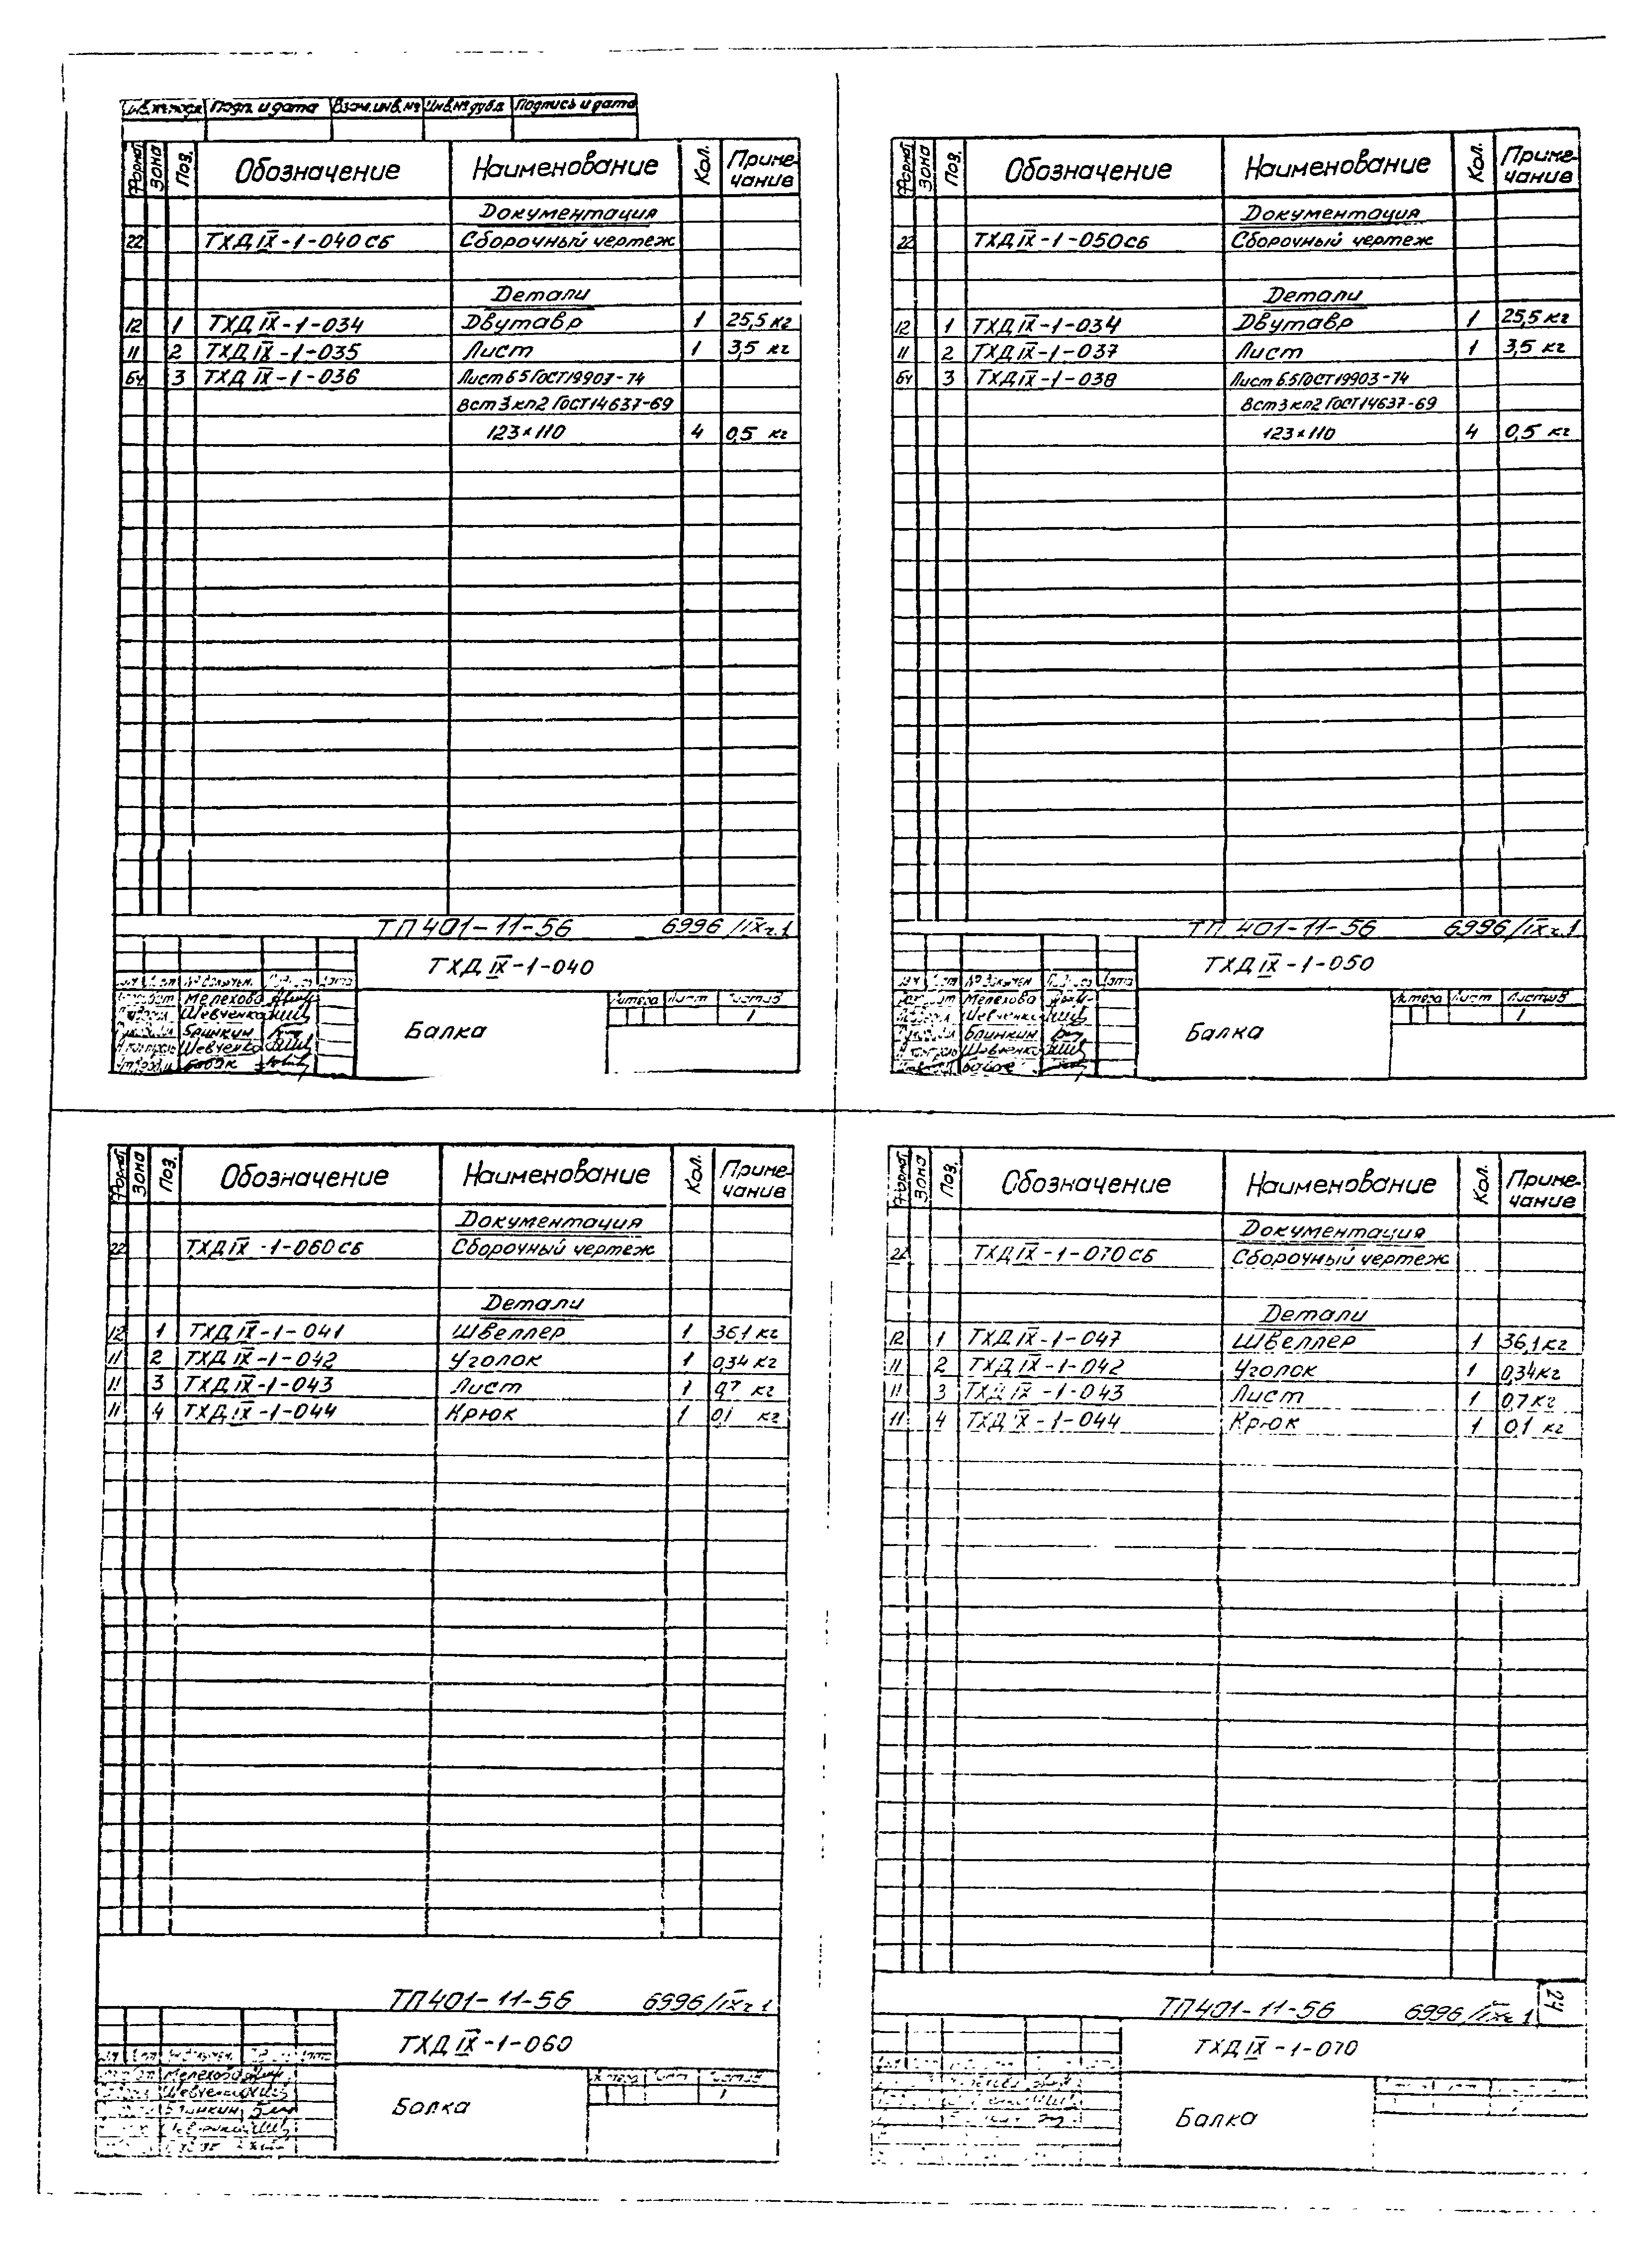 Подп. и дата Взам.инв.№ Инв.№ дубл. Подпись и дата
Формат Зона Поз. Обозначение Наименование Кол. Примечание
Документация
22 ТХД IX-1-040 СБ Сборочный чертеж
Детали
12 1 ТХД IX-1-034 Двутавр 1 25,5 кг
11 2 ТХД IX-1-035 Лист 1 3,5 кг
БЧ 3 ТХД IX-1-036 Лист Б5 ГОСТ 19903-74
Вст3кп2 ГОСТ 14637-69
123×110 4 0,5 кг
ТП 401-11-56 6996/IXч.1
ТХД IX-1-040
Мелехова
Шевченко
Бринкин
Шевченко
Балка
Литера Лист Листов
1
Формат Зона Поз. Обозначение Наименование Кол. Примечание
Документация
22 ТХД IX-1-050 СБ Сборочный чертеж
Детали
12 1 ТХД IX-1-034 Двутавр 1 25,5 кг
11 2 ТХД IX-1-037 Лист 1 3,5 кг
БЧ 3 ТХД IX-1-038 Лист Б.5 ГОСТ 19903-74
Вст3кп2 ГОСТ 14637-69
123×110 4 0,5 кг
ТП 401-11-56 6996/IXч.1
ТХД IX-1-050
Мелехова
Шевченко
Бринкин
Шевченко
Балка
Литера Лист Листов
1
Формат Зона Поз. Обозначение Наименование Кол. Примечание
Документация
22 ТХД IX-1-060 СБ Сборочный чертеж
Детали
12 1 ТХД IX-1-041 Швеллер 1 36,1 кг
11 2 ТХД IX-1-042 Уголок 1 0,34 кг
11 3 ТХД IX-1-043 Лист 1 0,7 кг
11 4 ТХД IX-1-044 Крюк 1 0,1 кг
ТП 401-11-56 6996/IXч.1
ТХД IX-1-060
Мелехова
Шевченко
Балка
1
Формат Зона Поз. Обозначение Наименование Кол. Примечание
Документация
22 ТХД IX-1-070 СБ Сборочный чертеж
Детали
12 1 ТХД IX-1-047 Швеллер 1 36,1 кг
11 2 ТХД IX-1-042 Уголок 1 0,34 кг
11 3 ТХД IX-1-043 Лист 1 0,7 кг
11 4 ТХД IX-1-044 Крюк 1 0,1 кг
ТП 401-11-56 6996/IXч.1
27
ТХД IX-1-070
Балка